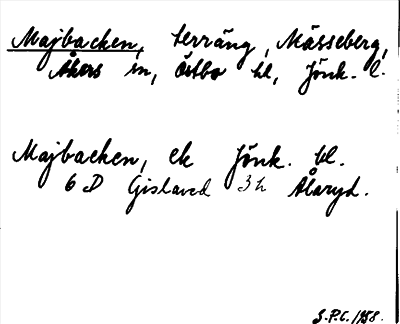 Majbacken, terräng, Mässeberg,
Åkers sn, Östbo hd, Jönk. l.
Majbacken, ek Jönk. bl.
6 D Gislaved 3 h Ålaryd.
S.P.C. 1958.